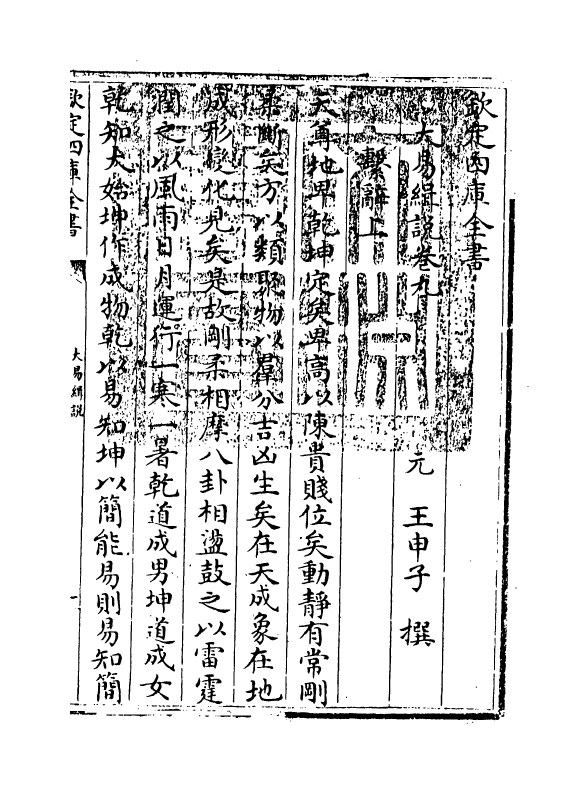 欽定四庫全書
大易緝說卷九
元 王申子 撰
繫辭上
天尊地卑乾坤定矣卑高以陳貴賤位矣動靜有常剛
柔斷矣方以類聚物以羣分吉凶生矣在天成象在地
成形變化見矣是故剛柔相摩八卦相盪鼓之以雷霆
潤之以風雨日月運行一寒一暑乾道成男坤道成女
乾知大始坤作成物乾以易知坤以簡能易則易知簡
欽定四庫全書
大易緝說
一